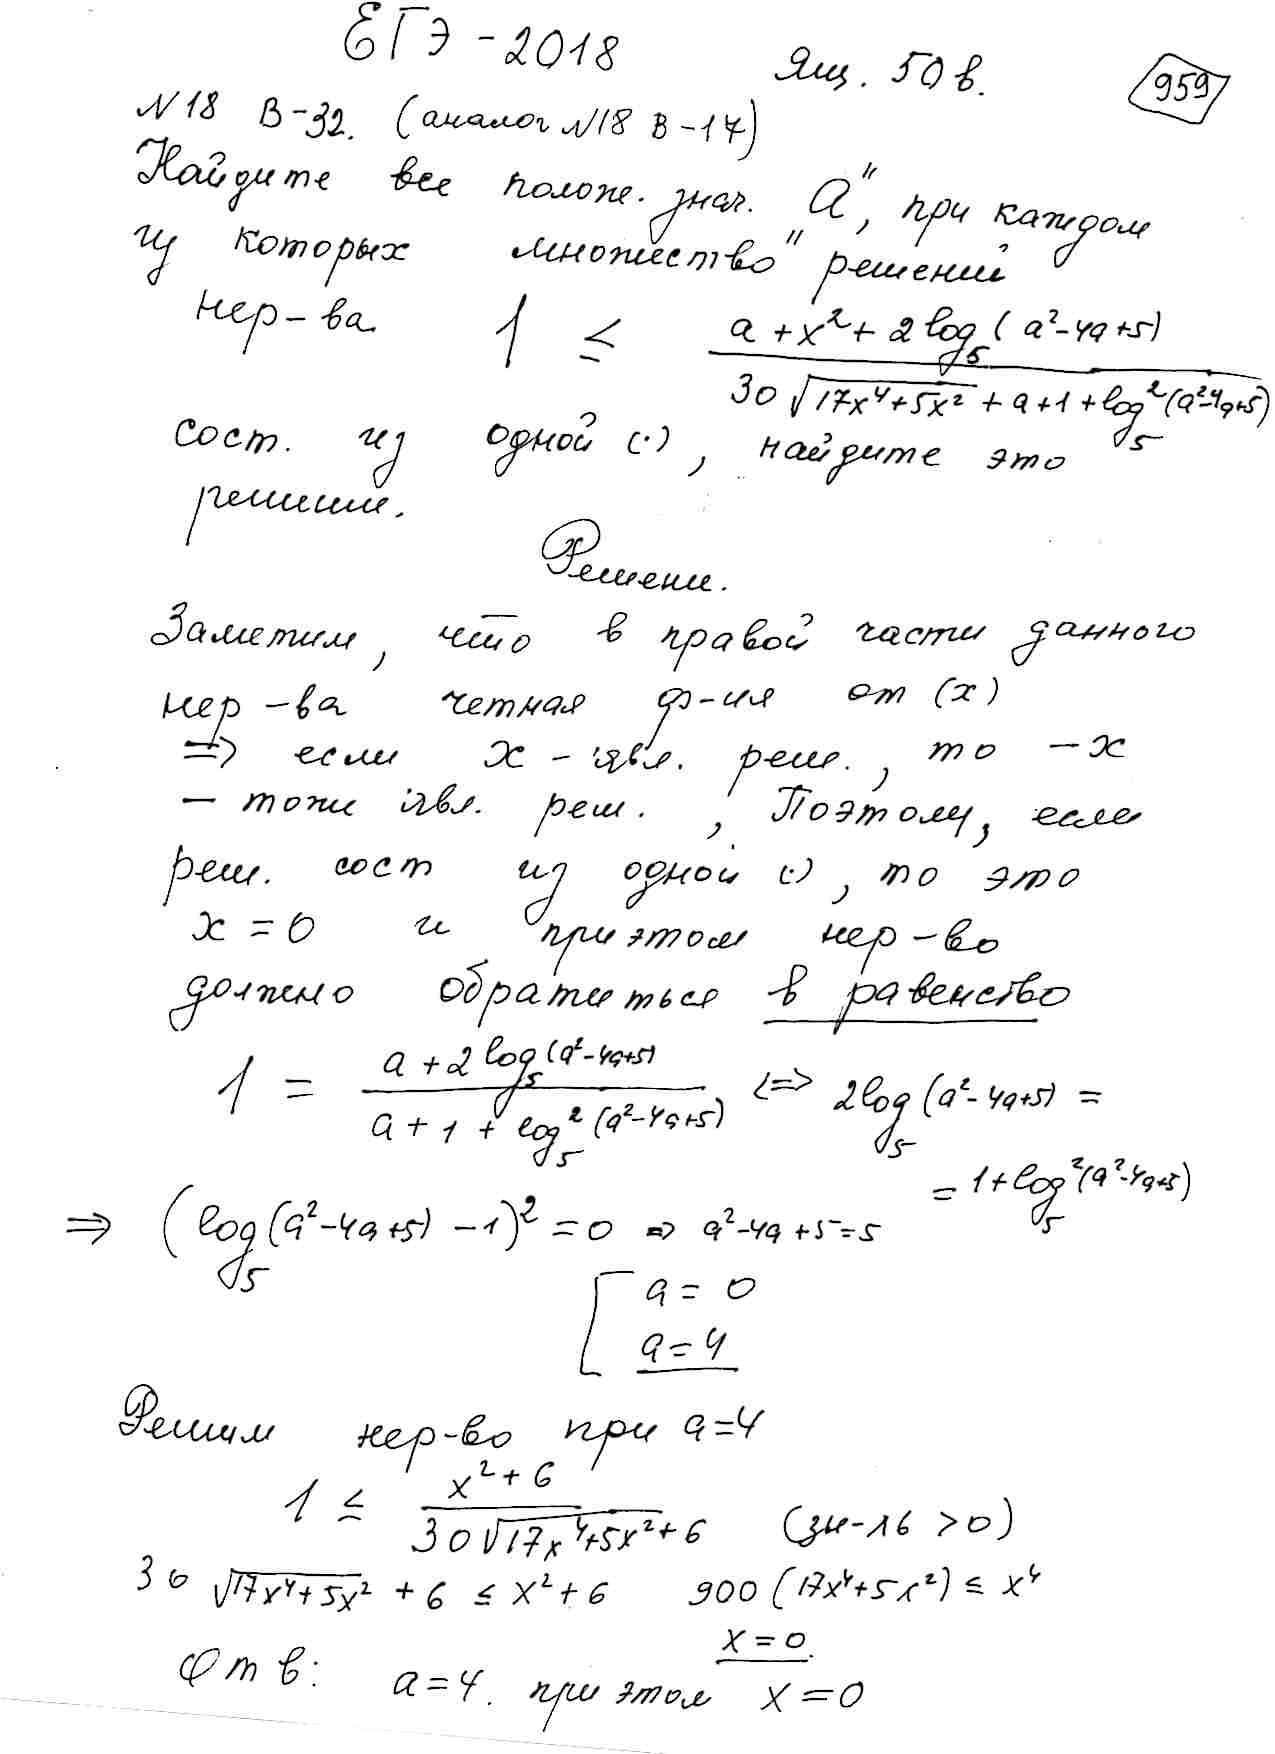 ЕГЭ - 2018 Ящ. 50 в. 959
N 18 В-32. (аналог N18 В-17)
Найдите все полож. знач. "a", при каждом
из которых "множество" решений
нер-ва 1 ≤ (a + x² + 2 log₅(a²-4a+5)) / (30√(17x⁴+5x²) + a+1+log₅²(a²-4a+5))
сост. из одной (·), найдите это
решение.
Решени.
Заметим, что в правой части данного
нер-ва четная ф-ия от (x)
=> если x - явл. реш., то -x
- тоже явл. реш., Поэтому, если
реш. сост из одной (·), то это
x = 0 и при этом нер-во
должно обратиться в равенство
1 = (a + 2 log₅(a²-4a+5)) / (a + 1 + log₅²(a²-4a+5)) <=> 2log₅(a²-4a+5) =
= 1+log₅²(a²-4a+5)
=> (log₅(a²-4a+5) -1)² = 0 => a²-4a+5=5
[ a = 0
a = 4
Решим нер-во при a=4
1 ≤ (x² + 6) / (30√(17x⁴+5x²) + 6) (зн-ль > 0)
30 √(17x⁴+5x²) + 6 ≤ x² + 6 900 (17x⁴+5x²) ≤ x⁴
x = 0.
Отв: a=4. при этом x = 0